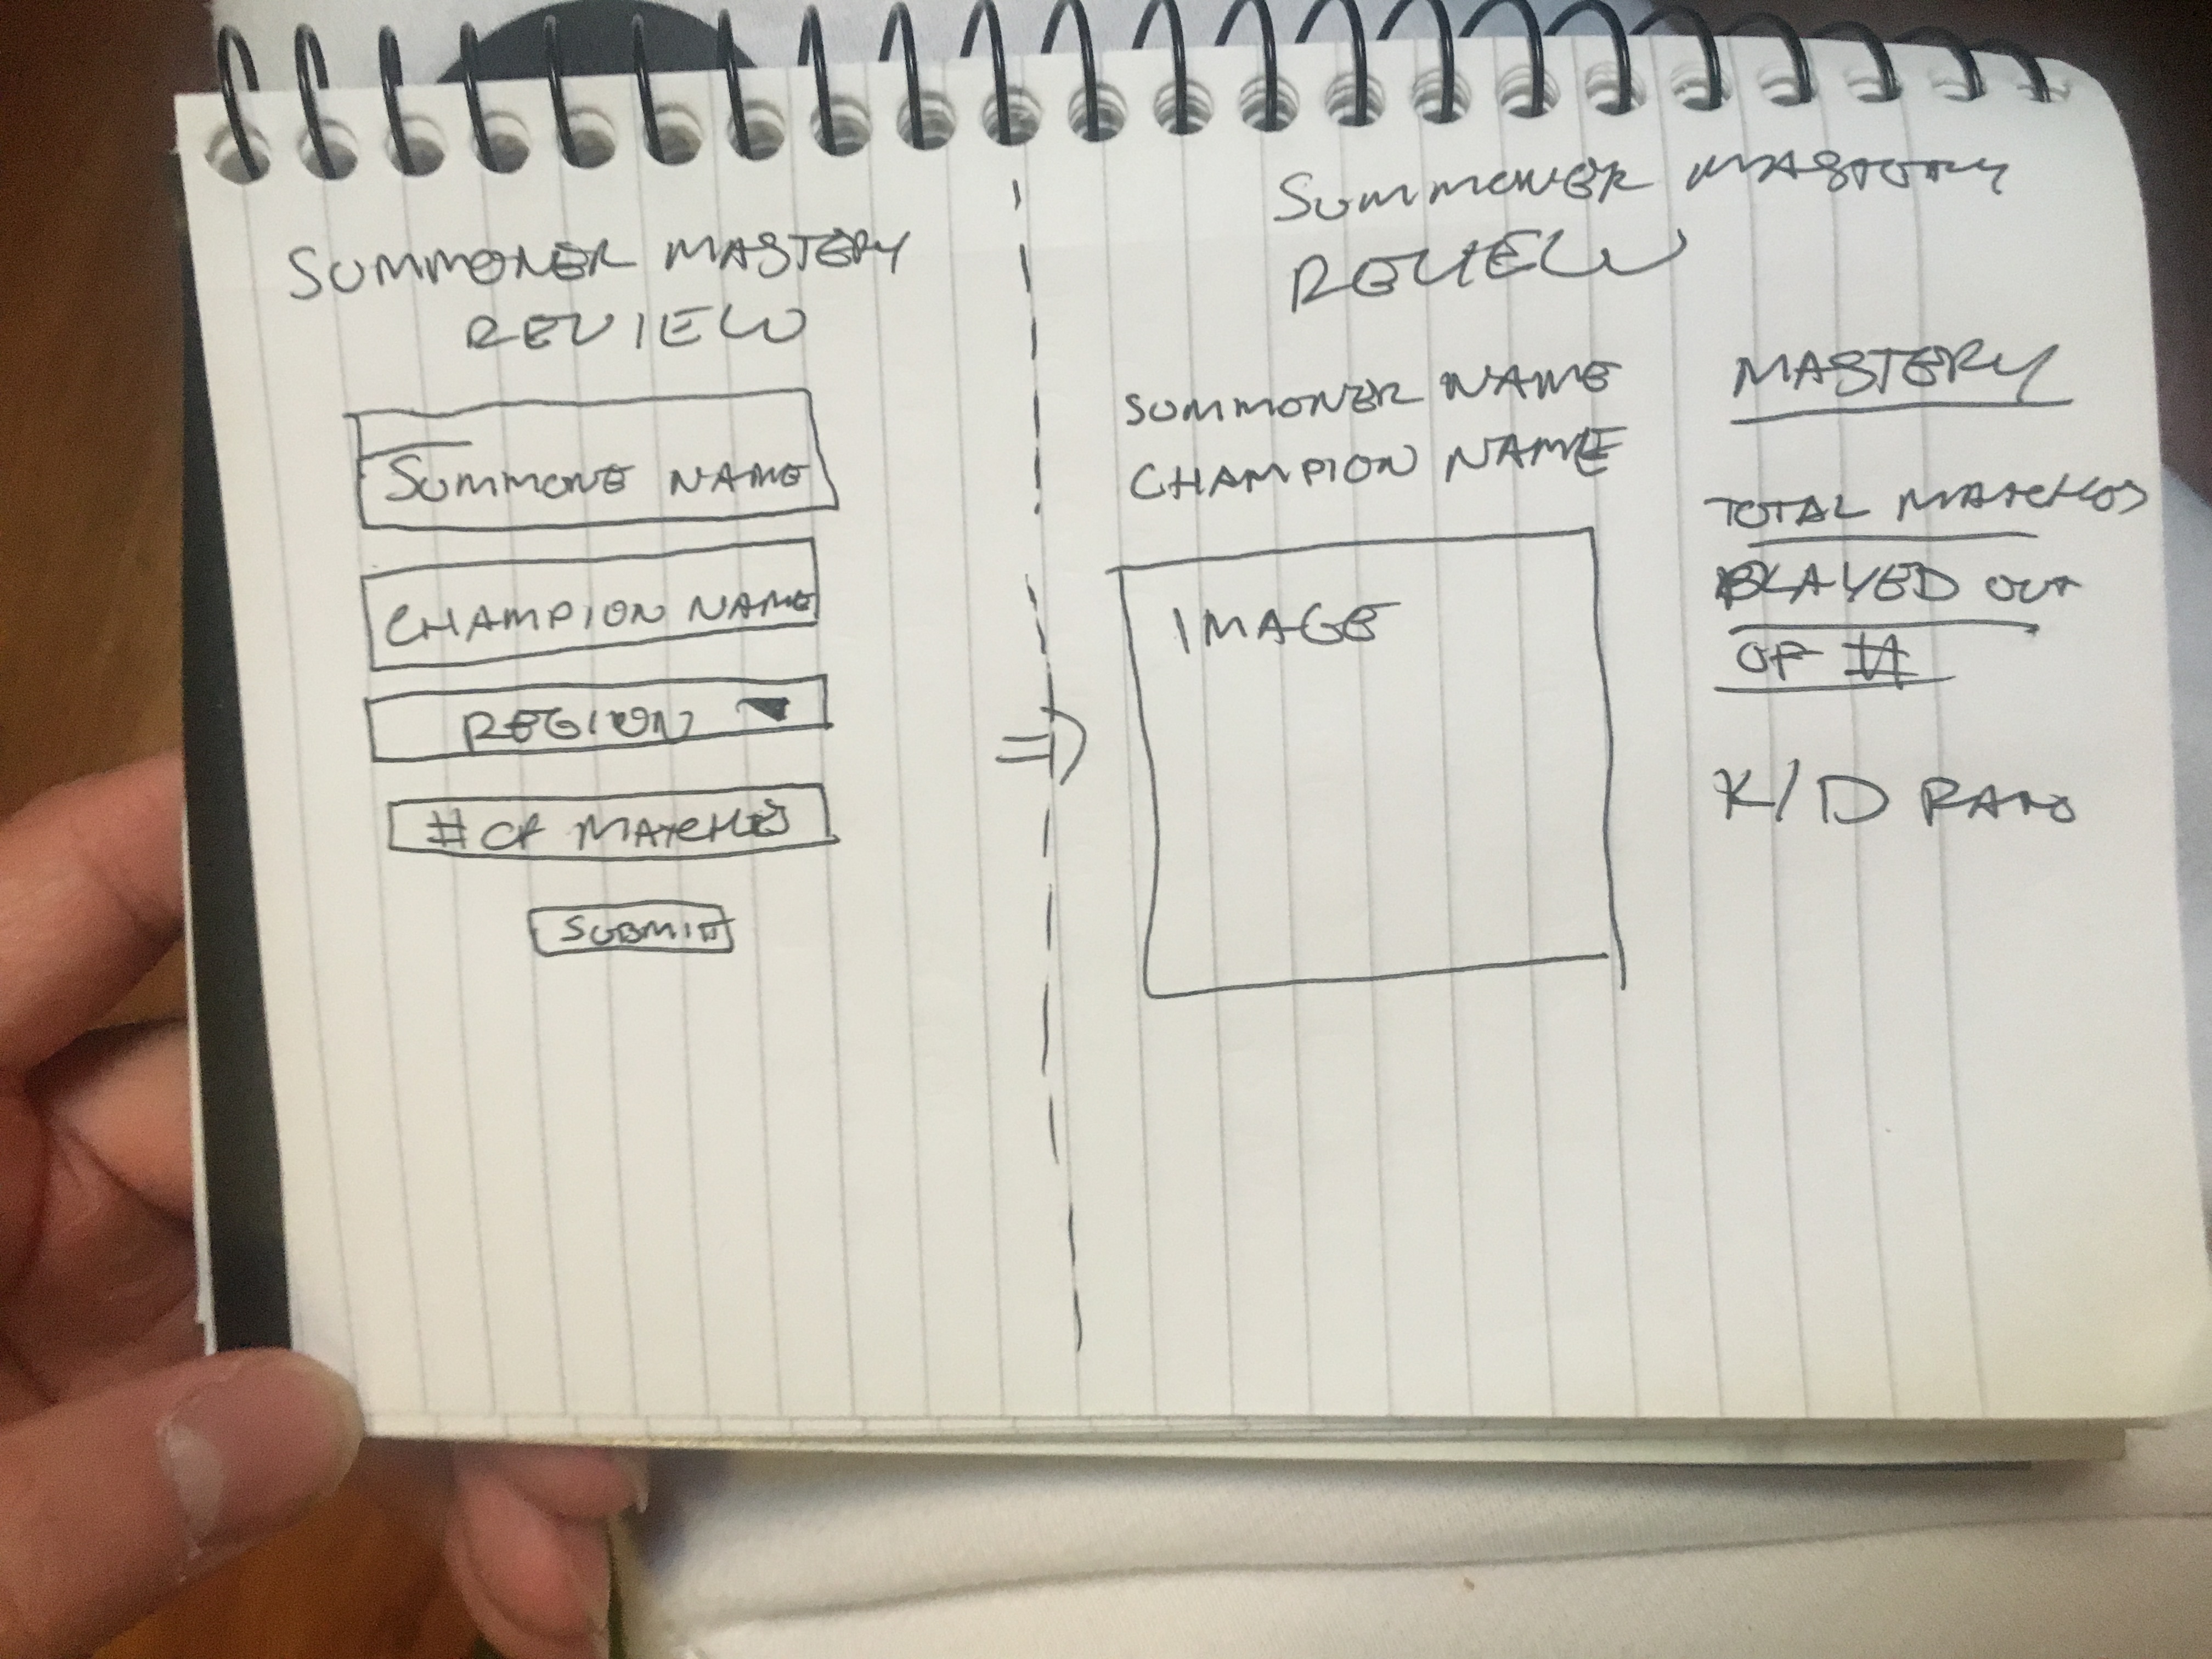 SUMMONER MASTERY
REVIEW
SUMMONE NAME
CHAMPION NAME
REGION
# OF MATCHES
SUBMIT
SUMMONER MASTERY
REVIEW
SUMMONER NAME
CHAMPION NAME
IMAGE
MASTERY
TOTAL MATCHES
PLAYED OUT
OF #
K/D RATIO